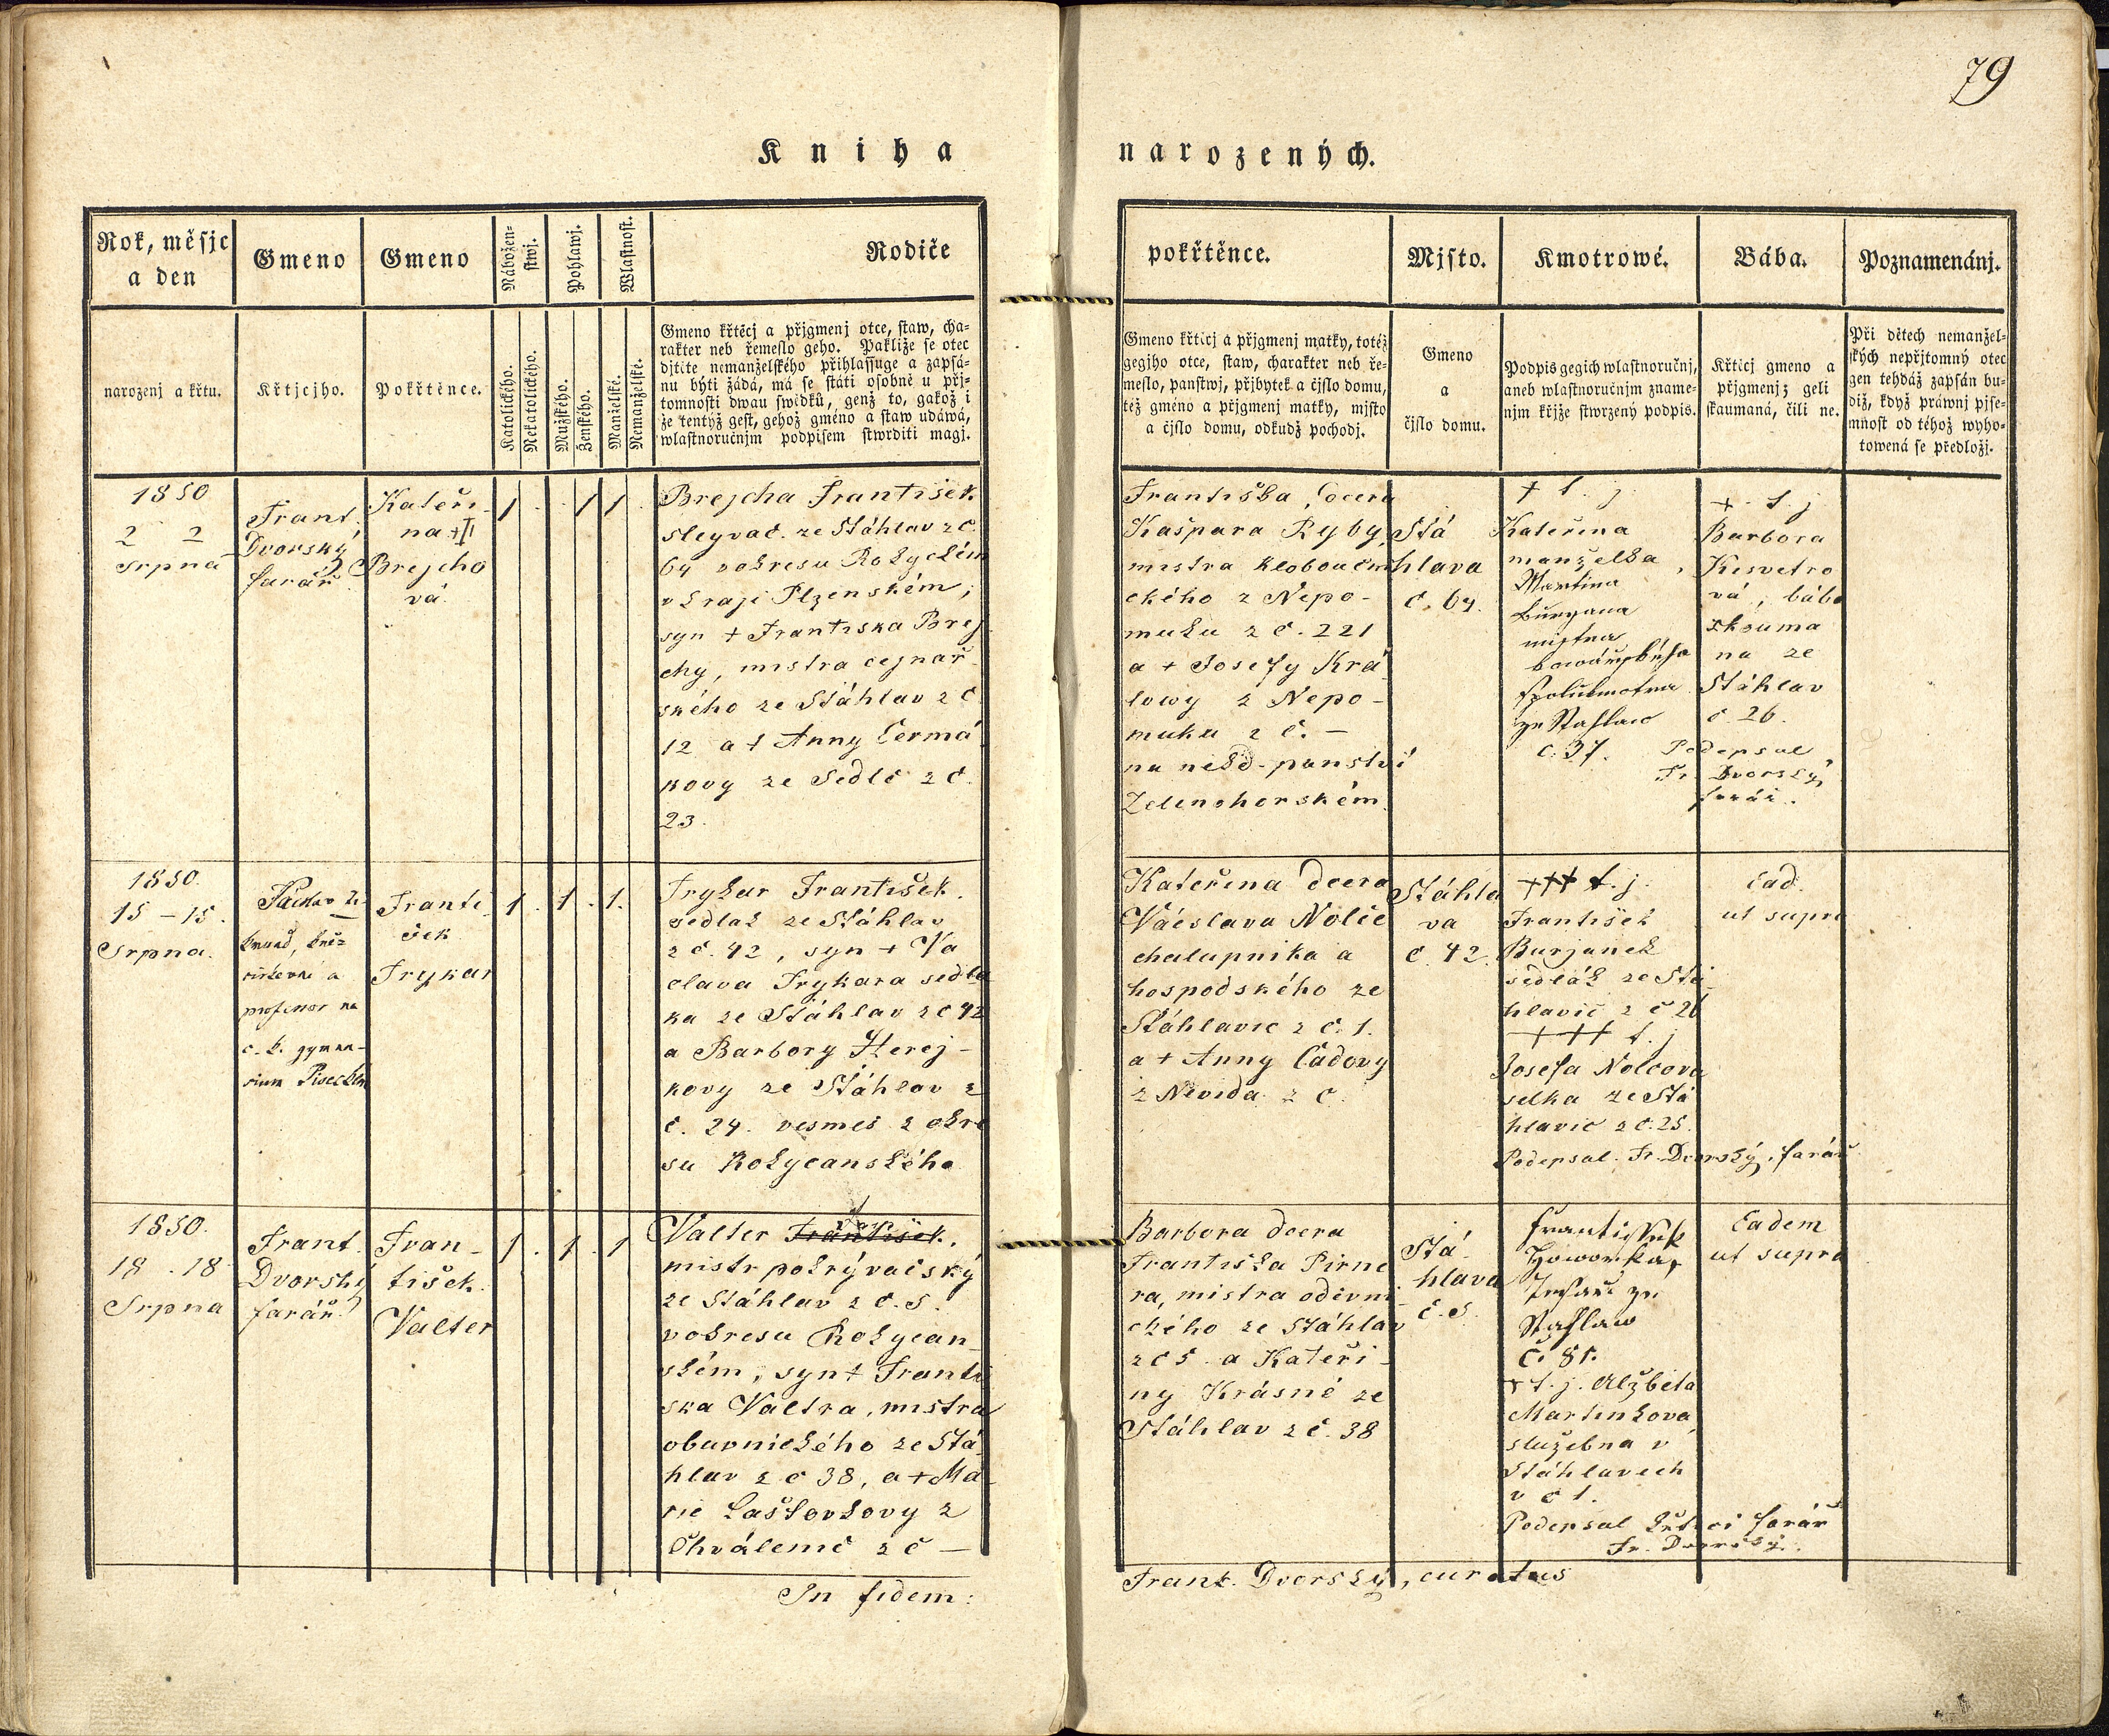 79
Kniha narozených.
Rok, měsjc
a den
Gmeno
Gmeno
Nábožen-
stwj.
Pohlawj.
Wlastnost.
Rodiče
narozenj a křtu.
Křtjcjho.
Pokřtěnce.
Katolického.
Nekatolického.
Mužského.
Ženského.
Manželské.
Nemanželské.
Gmeno křtěcj a přjgmenj otce, staw, cha-
rakter neb řemeslo geho. Pakliže se otec
djtěte nemanželského přihlassuge a zapsá-
nu býti žádá, má se státi osobně u přj-
tomnosti dwau swědků, genž to, gakož i
že tentýž gest, gehož gméno a staw udáwá,
wlastnoručnjm podpisem stwrditi magj.
1850
2 2
Srpna
Frant.
Dvorský
farář
Kateři-
na +II
Brejcho
vá.
1 . . 1 1 .
Brejcha František
sleyvač. ze Stáhlav z č.
64 v okresu Rokyckém
v kraji Plzenském;
syn + Františka Brej
chy, mistra cejnař
ského ze Stáhlav z č
12 a + Anny Čermá
kovy ze Sedlc z č.
23.
1850.
15 – 15.
Srpna.
profesor na
c. k. gymna-
sium
Franti
šek
Frykar
1 . 1 . 1.
Frykar František.
sedlák ze Stáhlav
z č. 42, syn + Vá
clava Frykara sedlá
ka ze Stáhlav z č 42
a Barbory Herej-
kovy ze Stáhlav z
č. 24. vesměs z okre
su Rokycanského
1850.
18 . 18
Srpna
Frant.
Dvorský
farář
Fran-
tišek.
Valter
1 . 1 . 1
Valter František.
mistr pokrývačský
ze Stáhlav z č. 5.
v okresu Rokycan
ském, syn + Franti
ška Valtra, mistra
obuvnického ze Stá
hlav z č 38, a + Ma
rie Laštovkovy z
Chválenic z č —
In fidem:
pokřtěnce.
Mjsto.
Kmotrowé.
Bába.
Poznamenánj.
Gmeno křticj a přjgmenj matky, totéž
gegjho otce, staw, charakter neb ře-
meslo, panstwj, přjbytek a čjslo domu,
též gméno a přjgmenj matky, mjsto
a čjslo domu, odkudž pochodj.
Gmeno
a
čjslo domu.
Podpis gegich wlastnoručnj,
aneb wlastnoručnjm zname-
njm křjže stwrzený podpis.
Křticj gmeno a
přjgmenj; geli
skaumaná, čili ne.
Při dětech nemanžel-
ských nepřjtomný otec
gen tehdáž zapsán bu-
diž, když práwnj pjse-
mnost od téhož wyho-
towená se předložj.
Františka, dcera
Kašpara Ryby,
mistra klobouční
ckého z Nepo-
muku z č. 221
a + Josefy Krá
lowy z Nepo-
muku z č. —
na někd. panství
Zelenohorském.
Stá
hlava
č. 64.
+ t. j.
Kateřina
manželka
Martina
Buryana
mistra
ze Stahlaw
č. 37.
+ t. j.
Barbora
Kesvetro
vá, bába
zkouma
ná ze
Stáhlav
č. 26.
Podepsal
Fr. Dvorský,
farář.
Kateřina dcera
Václava Nolče
chalupníka a
hospodského ze
Stáhlavic z č. 1.
a + Anny Čadovy
z Nevida z č.
Stáhla
va
č. 42.
+++ t. j.
František
Burjanek
sedlák ze Stá
hlavic z č 26
+++ t. j
Josefa Nolcova
selka ze Stá
hlavic z č. 25.
Podepsal Fr. Dvorský, farář
Ead.
ut supra
Barbora dcera
Františka Pirne
ra, mistra oděvni
ckého ze Stáhlav
z č 5. a Kateři-
ny Krásné ze
Stáhlav z č. 38
Stá
hlava
č. 5.
Howorka,
ze
Stahlaw
č. 81.
+ t. j. Alžběta
Martinkova
služebna v
Stáhlavech
v č 1.
Podepsal křtící farář
Fr. Dvorský.
Eadem
ut supra
Frant. Dvorský, curatus